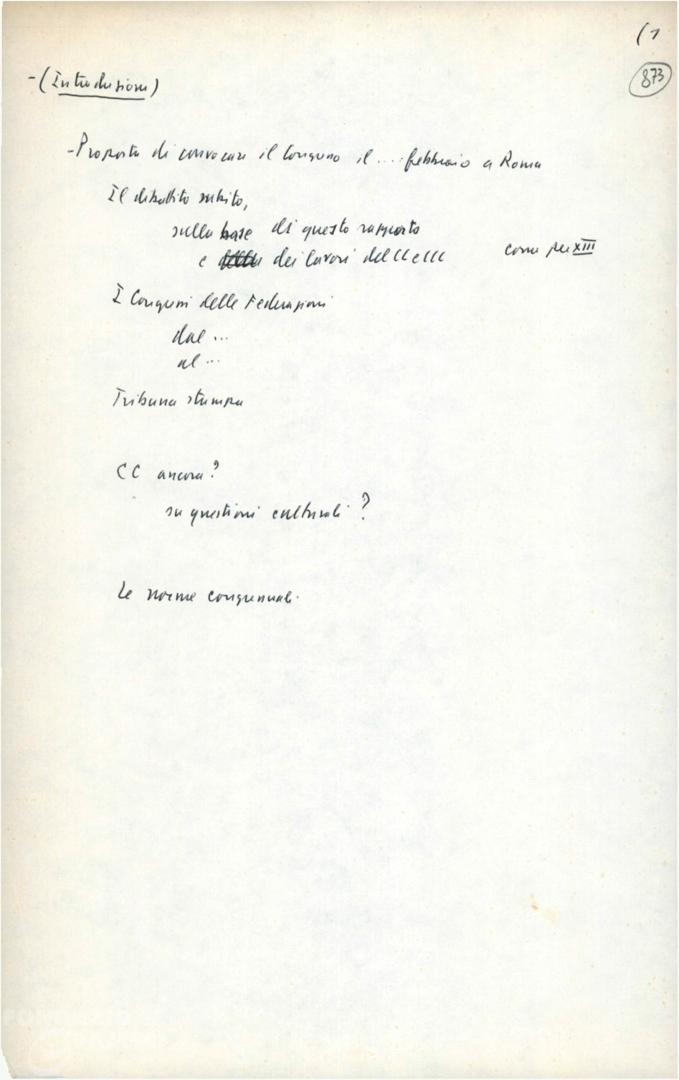 (1
873
-(Introduzione)
-Proposta di convocare il Congresso il .... febbraio a Roma
Il dibattito subito,
sulla base di questo rapporto
e dei lavori del CC e CCC come per XIII
I Congressi delle Federazioni
dal ...
al ...
Tribuna stampa
CC ancora?
su questioni culturali?
Le norme congressuali.